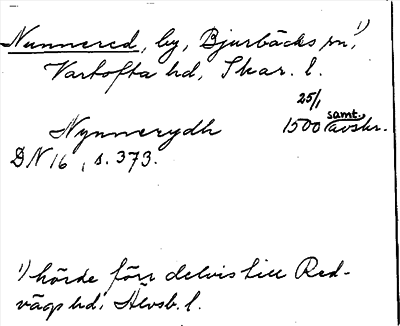 Nunnered, by, Bjurbäcks sn,¹⁾
Vartofta hd, Skar. l.
25/1
Nynnerydh 1500 samt. avskr.
DN 16, s. 373.
¹⁾ hörde förr delvis till Red-
vägs hd, Älvsb. l.